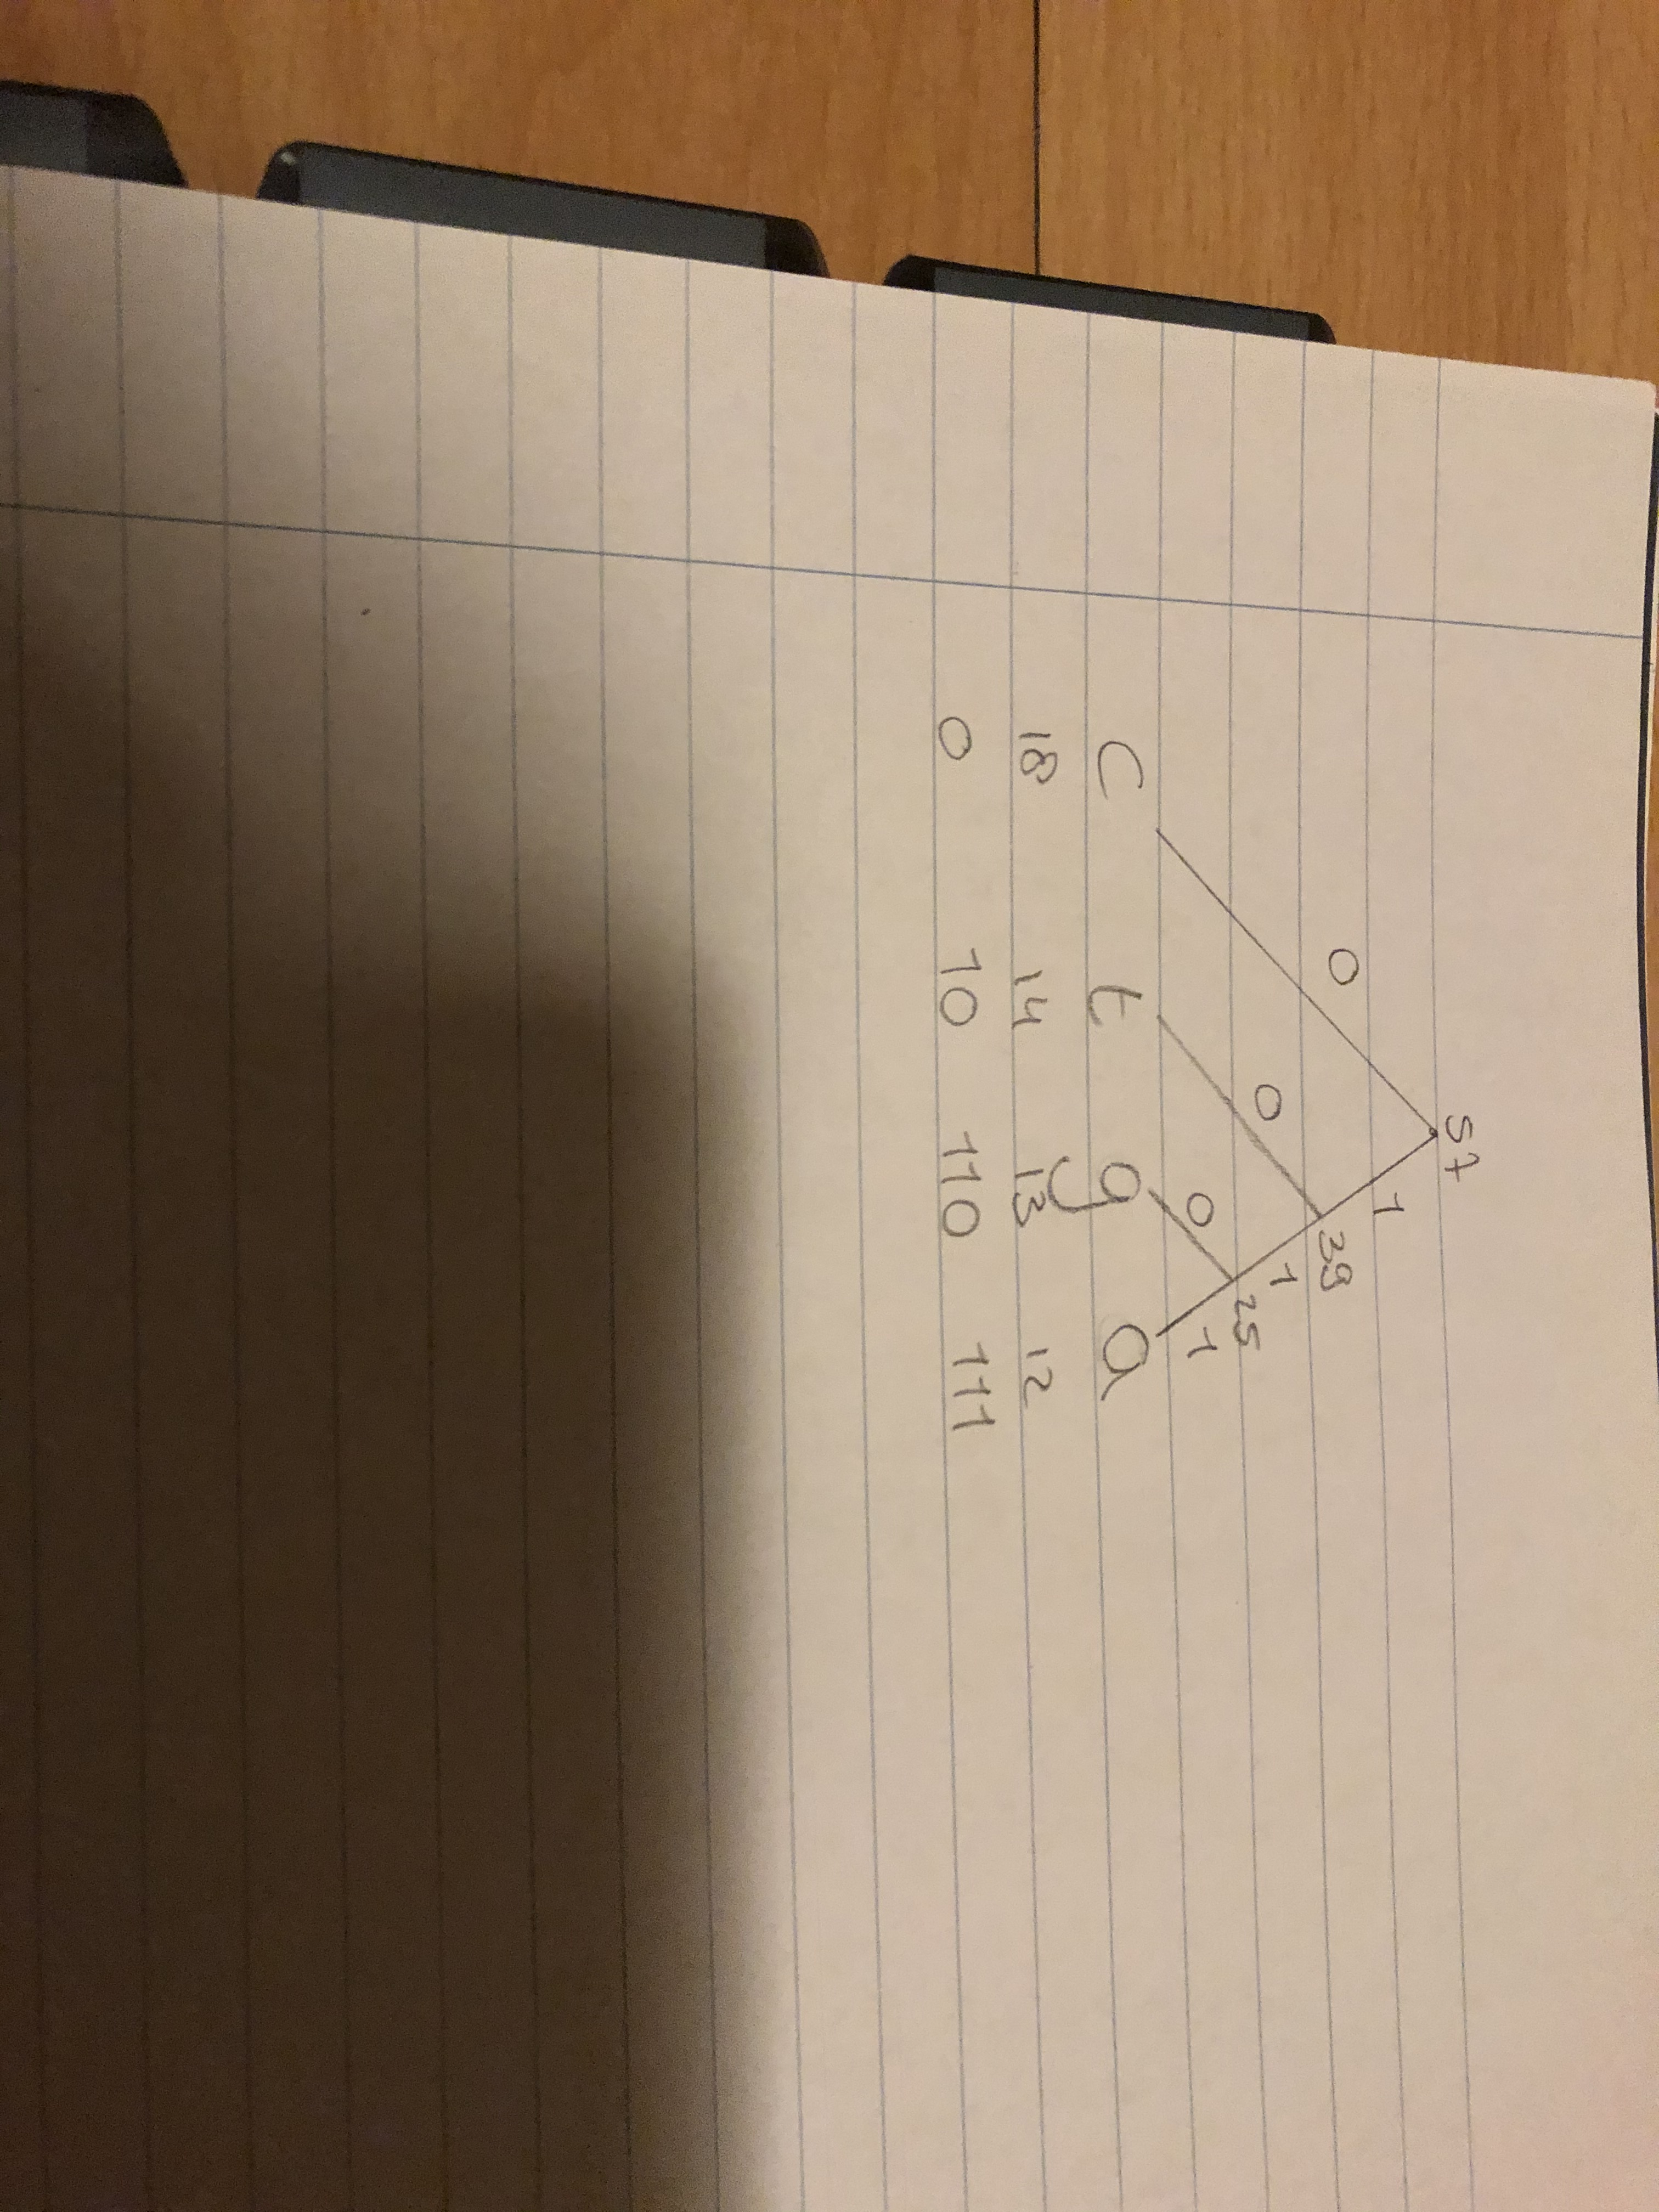 57
0 1
39
0 1
25
0 1
C t g a
18 14 13 12
0 10 110 111